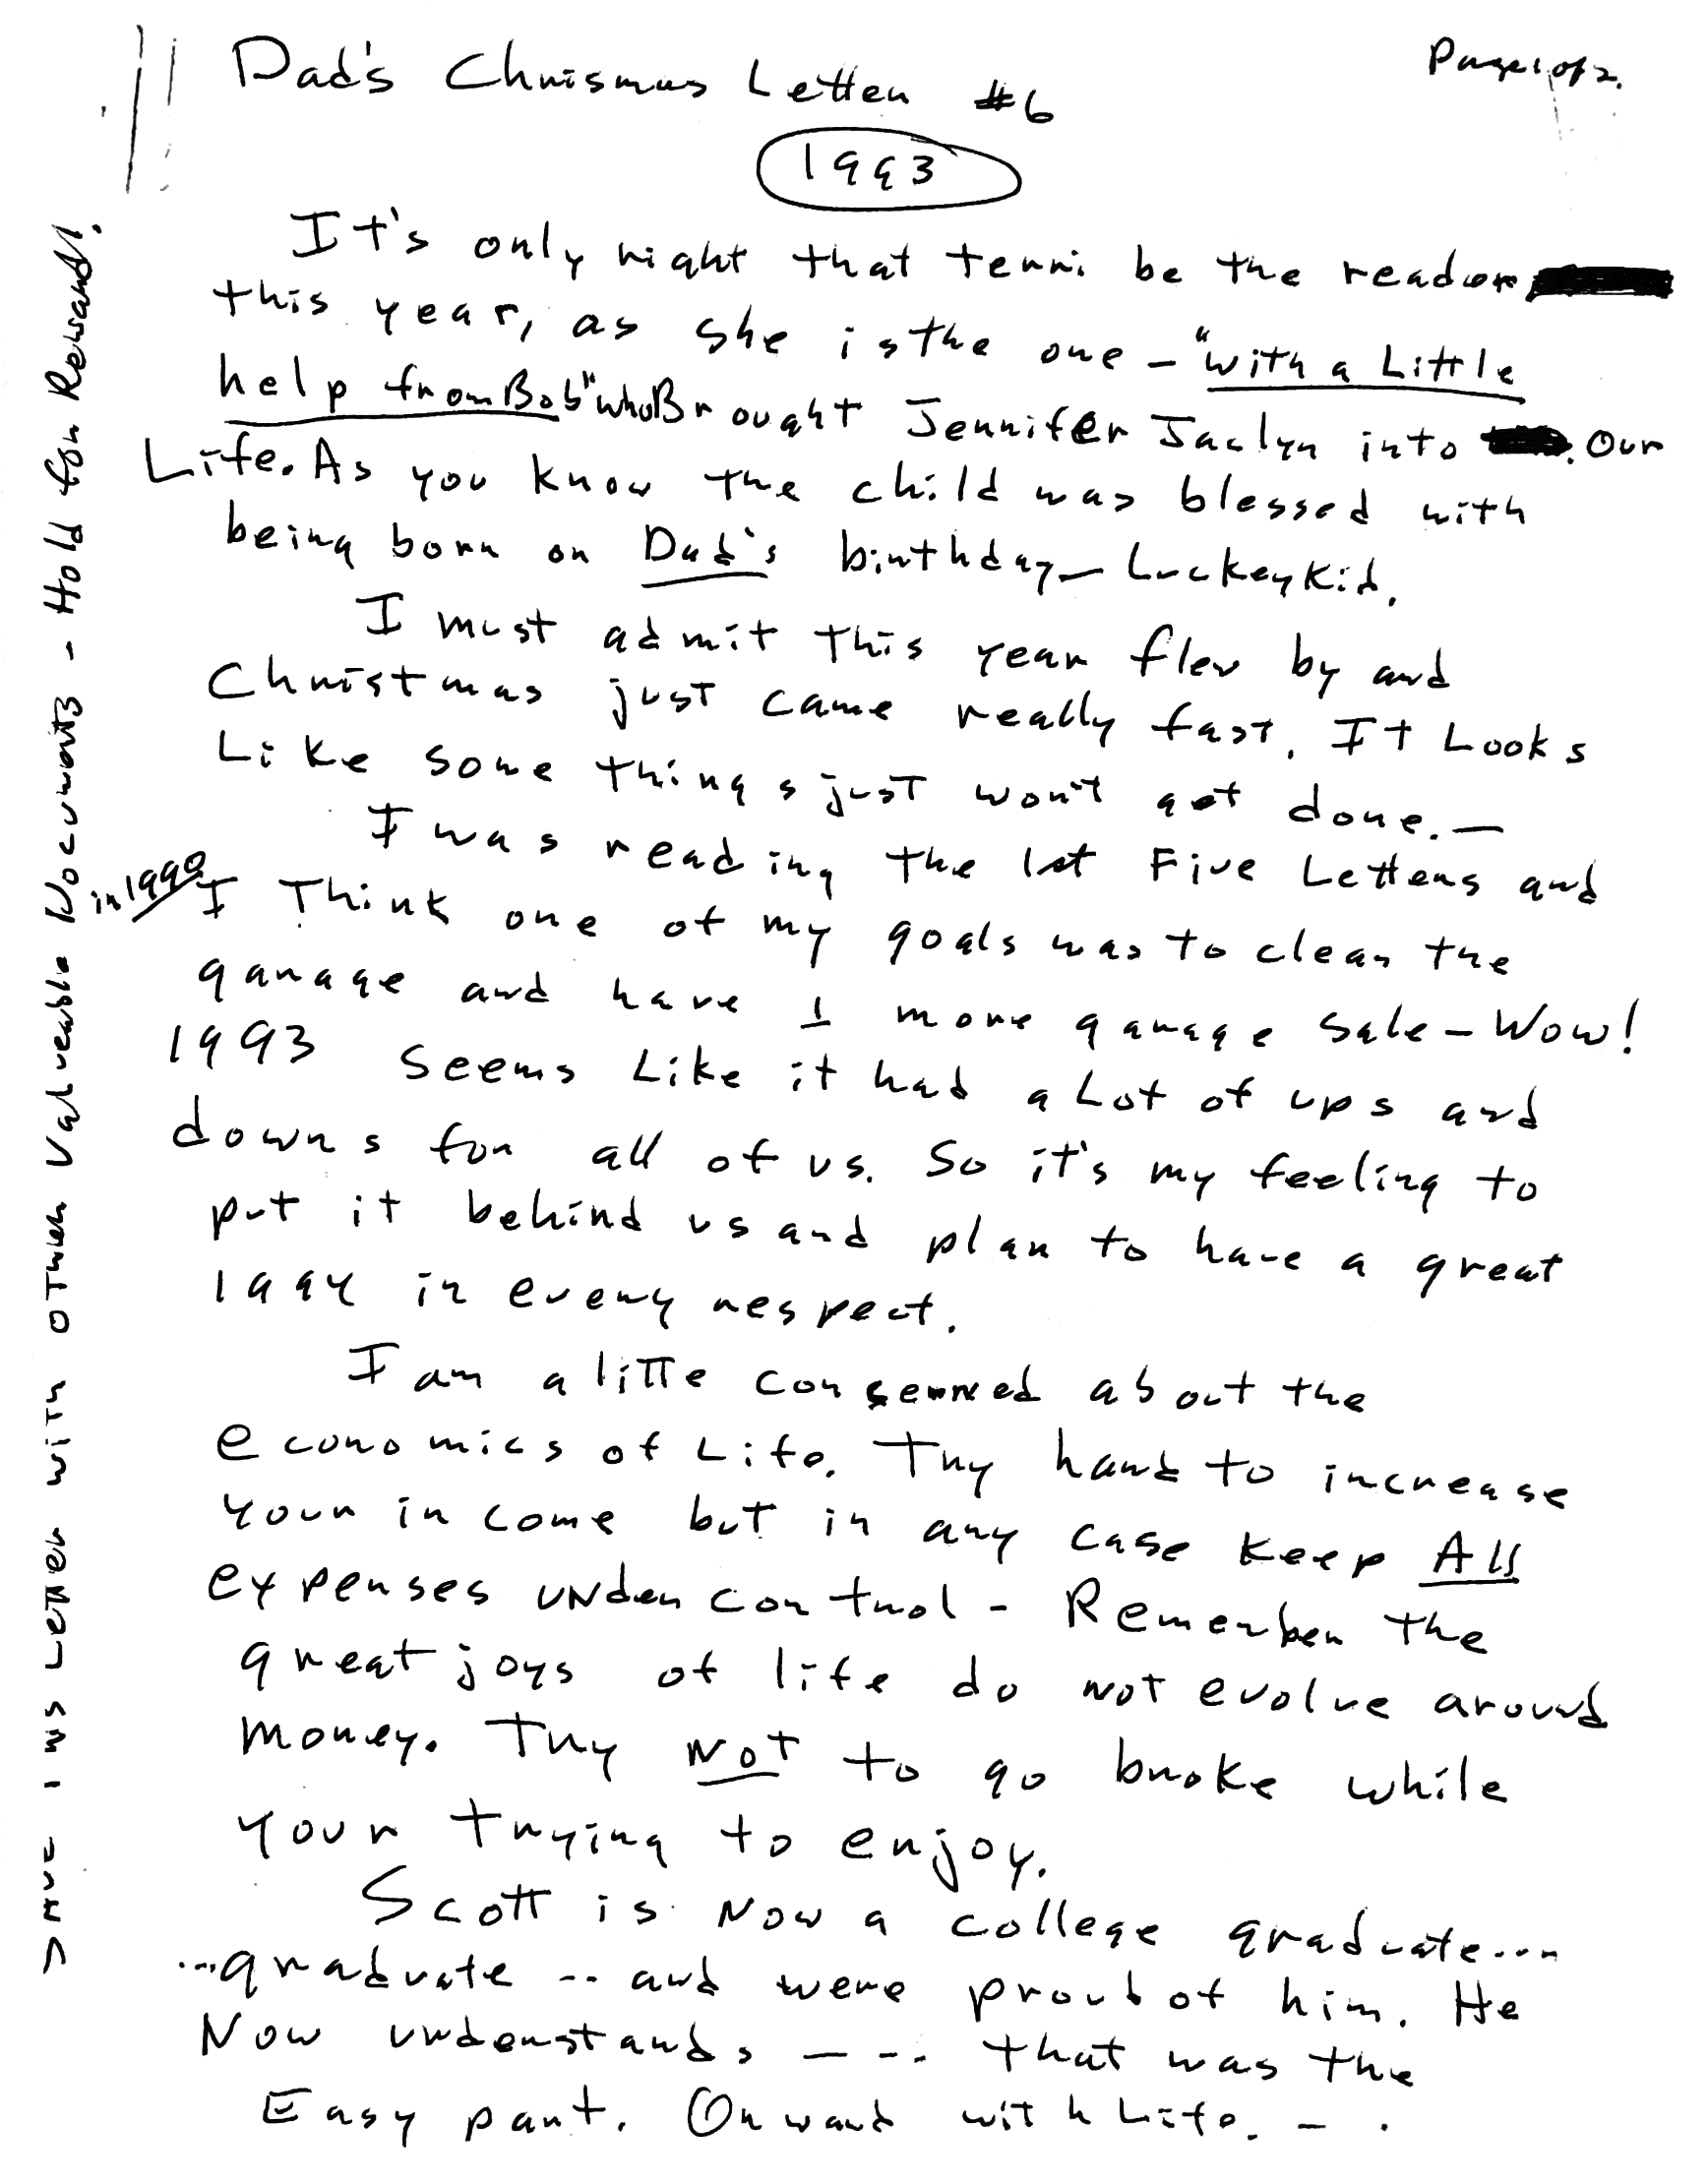 Dad's Chrismas Letter #6
Page 1 of 2.
1993
It's only right that terri be the reader
this year, as she is the one - "with a Little
help from Bob" who Brought Jennifer Jaclyn into Our
Life. As you know the child was blessed with
being born on Dad's birthday - Luckey Kid.
I must admit this year flew by and
Christmas just came really fast. It Looks
Like some things just won't get done. -
I was reading the 1st Five Letters and
in 1990
I Think one of my goals was to clean the
garage and have 1 more garage sale - Wow!
1993 seems Like it had a Lot of ups and
downs for all of us. So it's my feeling to
put it behind us and plan to have a great
1994 in every respect.
I am a litte conserned about the
economics of Life. Try hard to increase
your income but in any case keep All
expenses under control - Remember the
great joys of life do not evolve around
money. Try NOT to go broke while
your trying to enjoy.
Scott is Now a college graduate...
...graduate -- and were proud of him. He
Now understands - - - - that was the
Easy part. Onward with Life. - .
Save This Letter with other Valueable Documents - Hold for Reward!